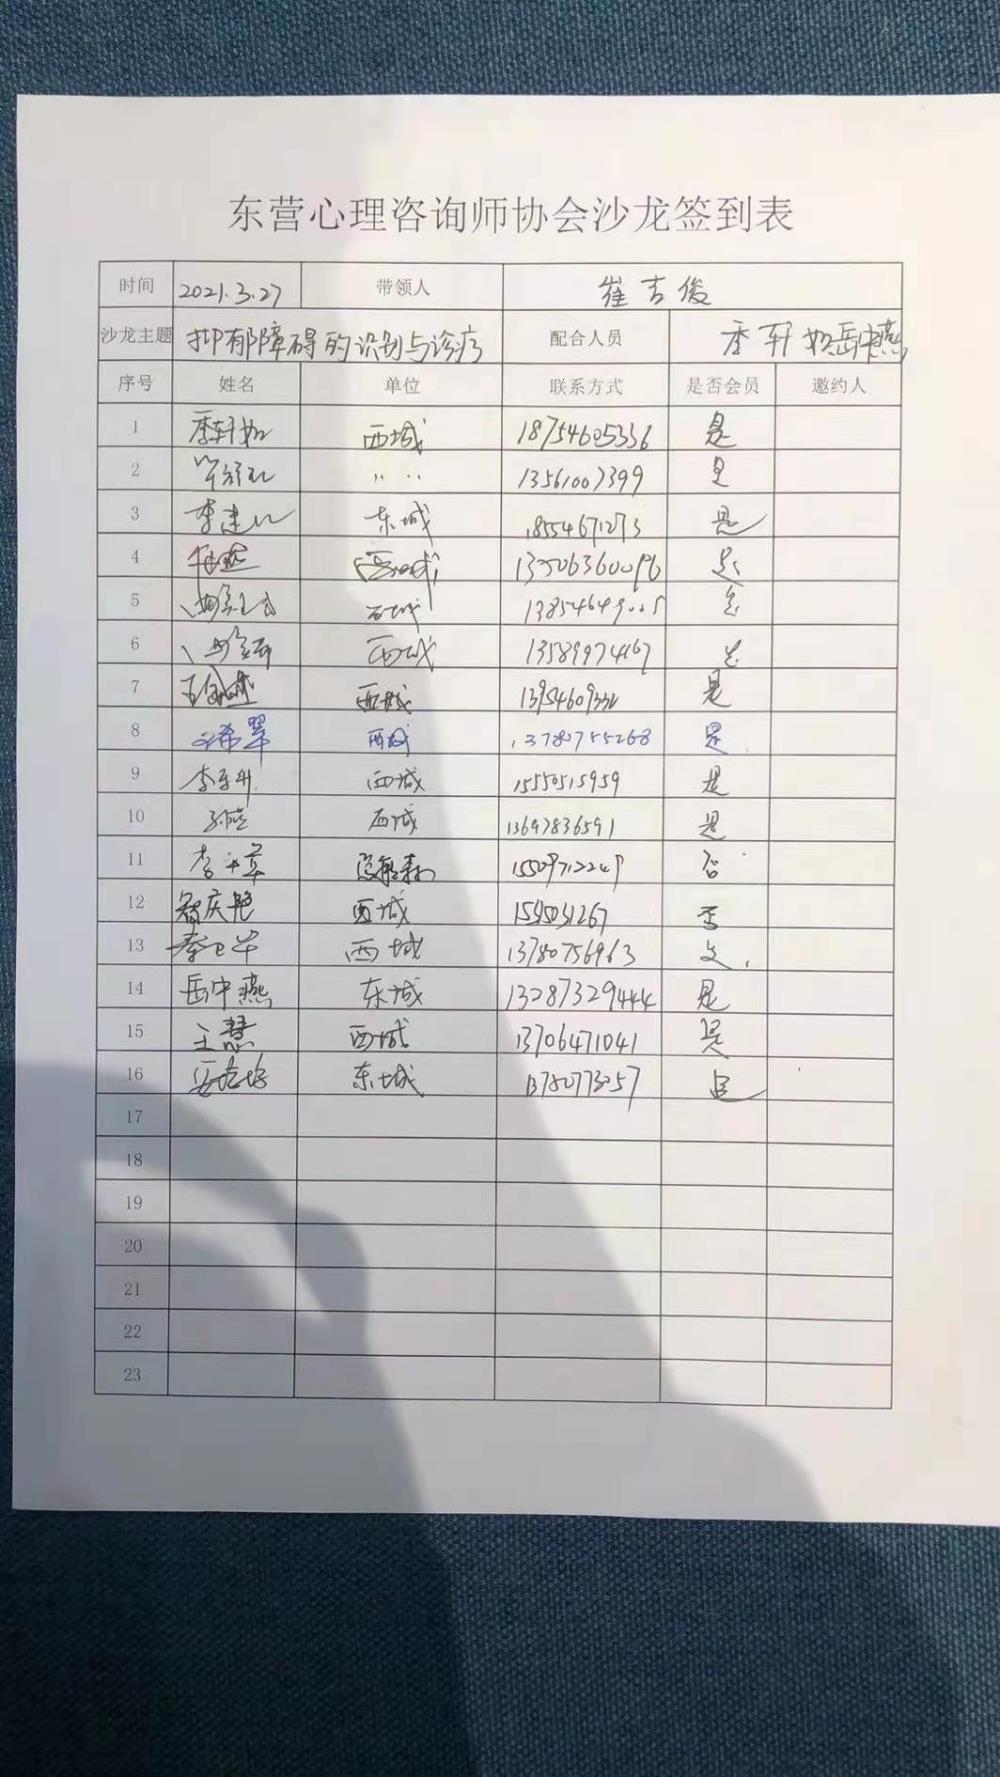 东营心理咨询师协会沙龙签到表
时间 2021.3.27 带领人 崔吉俊
沙龙主题 抑郁障碍的识别与诊疗 配合人员 季轩如岳中燕
序号 姓名 单位 联系方式 是否会员 邀约人
1 季轩如 西城 18754605336 是
2 〃 13561007399 是
3 李建 东城 18554671273 是
4 西城 是
5 西城 是
6 西城 13589974167 是
7 西城 是
8 翠 西城 13780755268 是
9 李 西城 15550515959 是
10 孙 西城 13697836591 是
11 李 15509712249 否
12 庆艳 西城 1545031267 否
13 秦卫华 西城 13780756963
14 岳中燕 东城 13287329444 是
15 王慧 西城 13706471041 是
16 东城 是
17
18
19
20
21
22
23